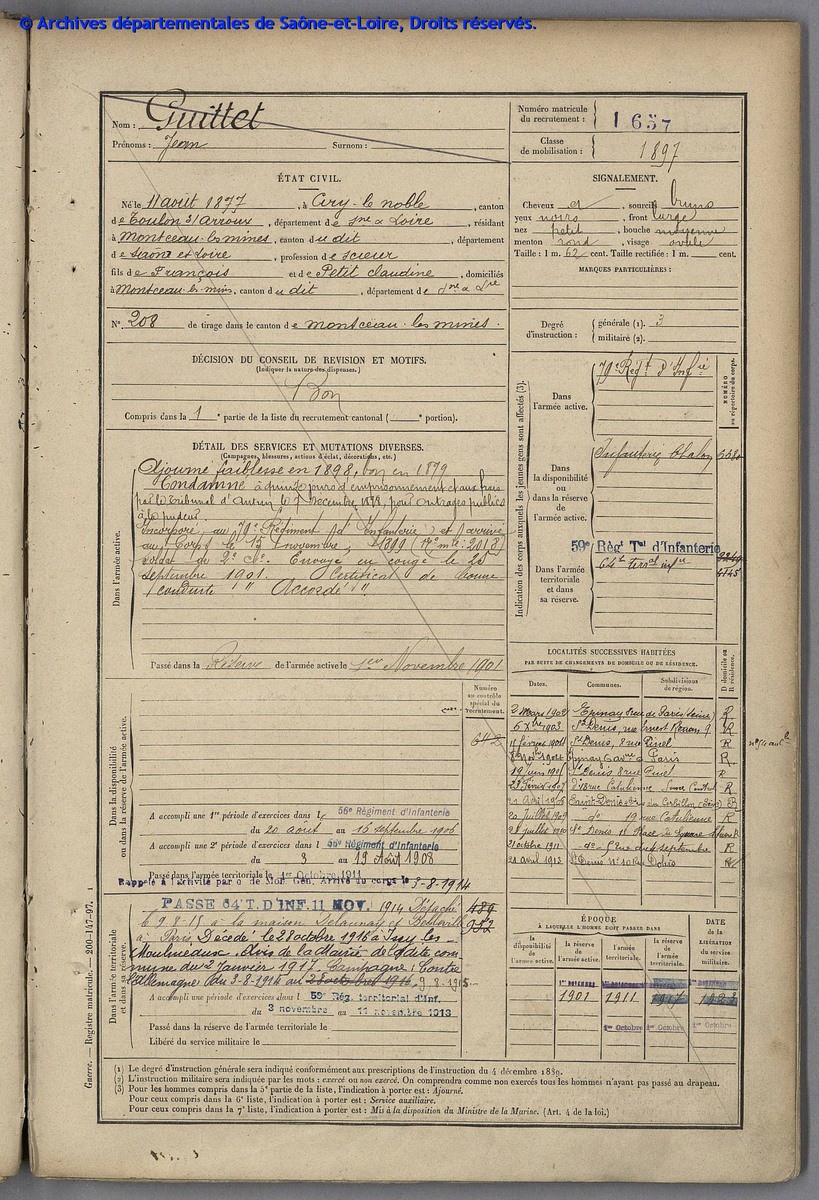 © Archives départementales de Saône-et-Loire, Droits réservés.
Nom : Guittet
Prénoms : Jean Surnom :
Numéro matricule du recrutement : 1657
Classe de mobilisation : 1897
ÉTAT CIVIL.
Né le 11 août 1877, à Ciry-le noble, canton
de Toulon s/ Arroux, département de Sne & Loire, résidant
à Montceau-les mines, canton du dit, département
de Saone et Loire, profession de scieur
fils de François et de Petit claudine, domiciliés
à Montceau-les mines, canton du dit, département de Sne & Lre
N° 208 de tirage dans le canton de montceau-les mines.
SIGNALEMENT.
Cheveux et sourcils bruns
yeux noirs, front large
nez petit, bouche moyenne
menton rond, visage ovale
Taille : 1 m. 62 cent. Taille rectifiée : 1 m. cent.
MARQUES PARTICULIÈRES :
Degré d'instruction : générale (1). 3
militaire (2).
DÉCISION DU CONSEIL DE REVISION ET MOTIFS.
(Indiquer la nature des dispenses.)
Bon
Compris dans la 1e partie de la liste du recrutement cantonal ( portion).
DÉTAIL DES SERVICES ET MUTATIONS DIVERSES.
(Campagnes, blessures, actions d'éclat, décorations, etc.)
Dans l'armée active.
Ajourné faiblesse en 1898, bon en 1879
Condamné à quinze jours d'emprisonnement et aux frais
par le Tribunal d'Autun le 7 décembre 1898, pour outrages publics
à la pudeur
Incorporé au 79e Régiment d'Infanterie et arrivé
au Corps le 15 novembre 1899 (No mle 2018)
soldat de 2e Cl. Envoyé en congé le 25
septembre 1901. Certificat de bonne
conduite "Accordé"
Passé dans la Réserve de l'armée active le 1er Novembre 1901
Indication des corps auxquels les jeunes gens sont affectés (3).
NUMÉRO au répertoire du corps.
Dans l'armée active. 79e Régt d'Infie
Dans la disponibilité ou dans la réserve de l'armée active. Infanterie Chalon
59e Régt Tal d'Infanterie
Dans l'armée territoriale et dans sa réserve. 64e terral infie
LOCALITÉS SUCCESSIVES HABITÉES
PAR SUITE DE CHANGEMENTS DE DOMICILE OU DE RÉSIDENCE.
Dates. Communes. Subdivisions de région. D domicile ou R résidence.
2 Mars 1902 Epinay 8 rue de Paris (Seine) R
6 Xbre 1903 St Denis, rue Ernest Renan 9 R
11 février 1904 St Denis, 8 rue Pinel R
R
St Denis 8 rue Pinel R
Catulienne Seine Central R
Saint-Denis R
20 Juillet 1909 do 19 rue Catulienne R
28 juillet 1910 St Denis 11 Place R
21 octobre 1911 do 5 rue du 4 septembre R
21 avril 1912 St Denis
Dans la disponibilité ou dans la réserve de l'armée active.
Numéro au contrôle spécial du recrutement.
A accompli une 1re période d'exercices dans le 56e Régiment d'Infanterie
du 20 août au 16 septembre 1906
A accompli une 2e période d'exercices dans le 56e Régiment d'Infanterie
du 3 au 19 Août 1908
Passé dans l'armée territoriale le 1er Octobre 1911
Rappelé à l'activité par o de Mob. Gén. Arrivé au corps le 3-8-1914
Dans l'armée territoriale et dans sa réserve.
PASSÉ 64e T. D'INF. 11 NOV. 1914 Détaché 489
le 9-8-15 à la maison Delaunay et Belleville 952
à Paris. Décédé le 28 octobre 1916 à Issy les
Moulineaux. Avis de la Mairie de ladite com
mune du 2 Janvier 1917. Campagne : Contre
l'Allemagne du 3-8-1914 au 28 octobre 1916. 9-8-1915
A accompli une période d'exercices dans l 59e Rég. territorial d'Inf.
du 3 novembre au 11 novembre 1913
Passé dans la réserve de l'armée territoriale le
Libéré du service militaire le
ÉPOQUE
À LAQUELLE L'HOMME DOIT PASSER DANS
la disponibilité de l'armée active. la réserve de l'armée active. l'armée territoriale. la réserve de l'armée territoriale.
DATE de la LIBÉRATION du service militaire.
1901 1911 1917 1923
1er Octobre 1er Octobre 1er Octobre
Guerre. — Registre matricule. — 200-147-97.
(1) Le degré d'instruction générale sera indiqué conformément aux prescriptions de l'instruction du 4 décembre 1889.
(2) L'instruction militaire sera indiquée par les mots : exercé ou non exercé. On comprendra comme non exercés tous les hommes n'ayant pas passé au drapeau.
(3) Pour les hommes compris dans la 5e partie de la liste, l'indication à porter est : Ajourné.
Pour ceux compris dans la 6e liste, l'indication à porter est : Service auxiliaire.
Pour ceux compris dans la 7e liste, l'indication à porter est : Mis à la disposition du Ministre de la Marine. (Art. 4 de la loi.)